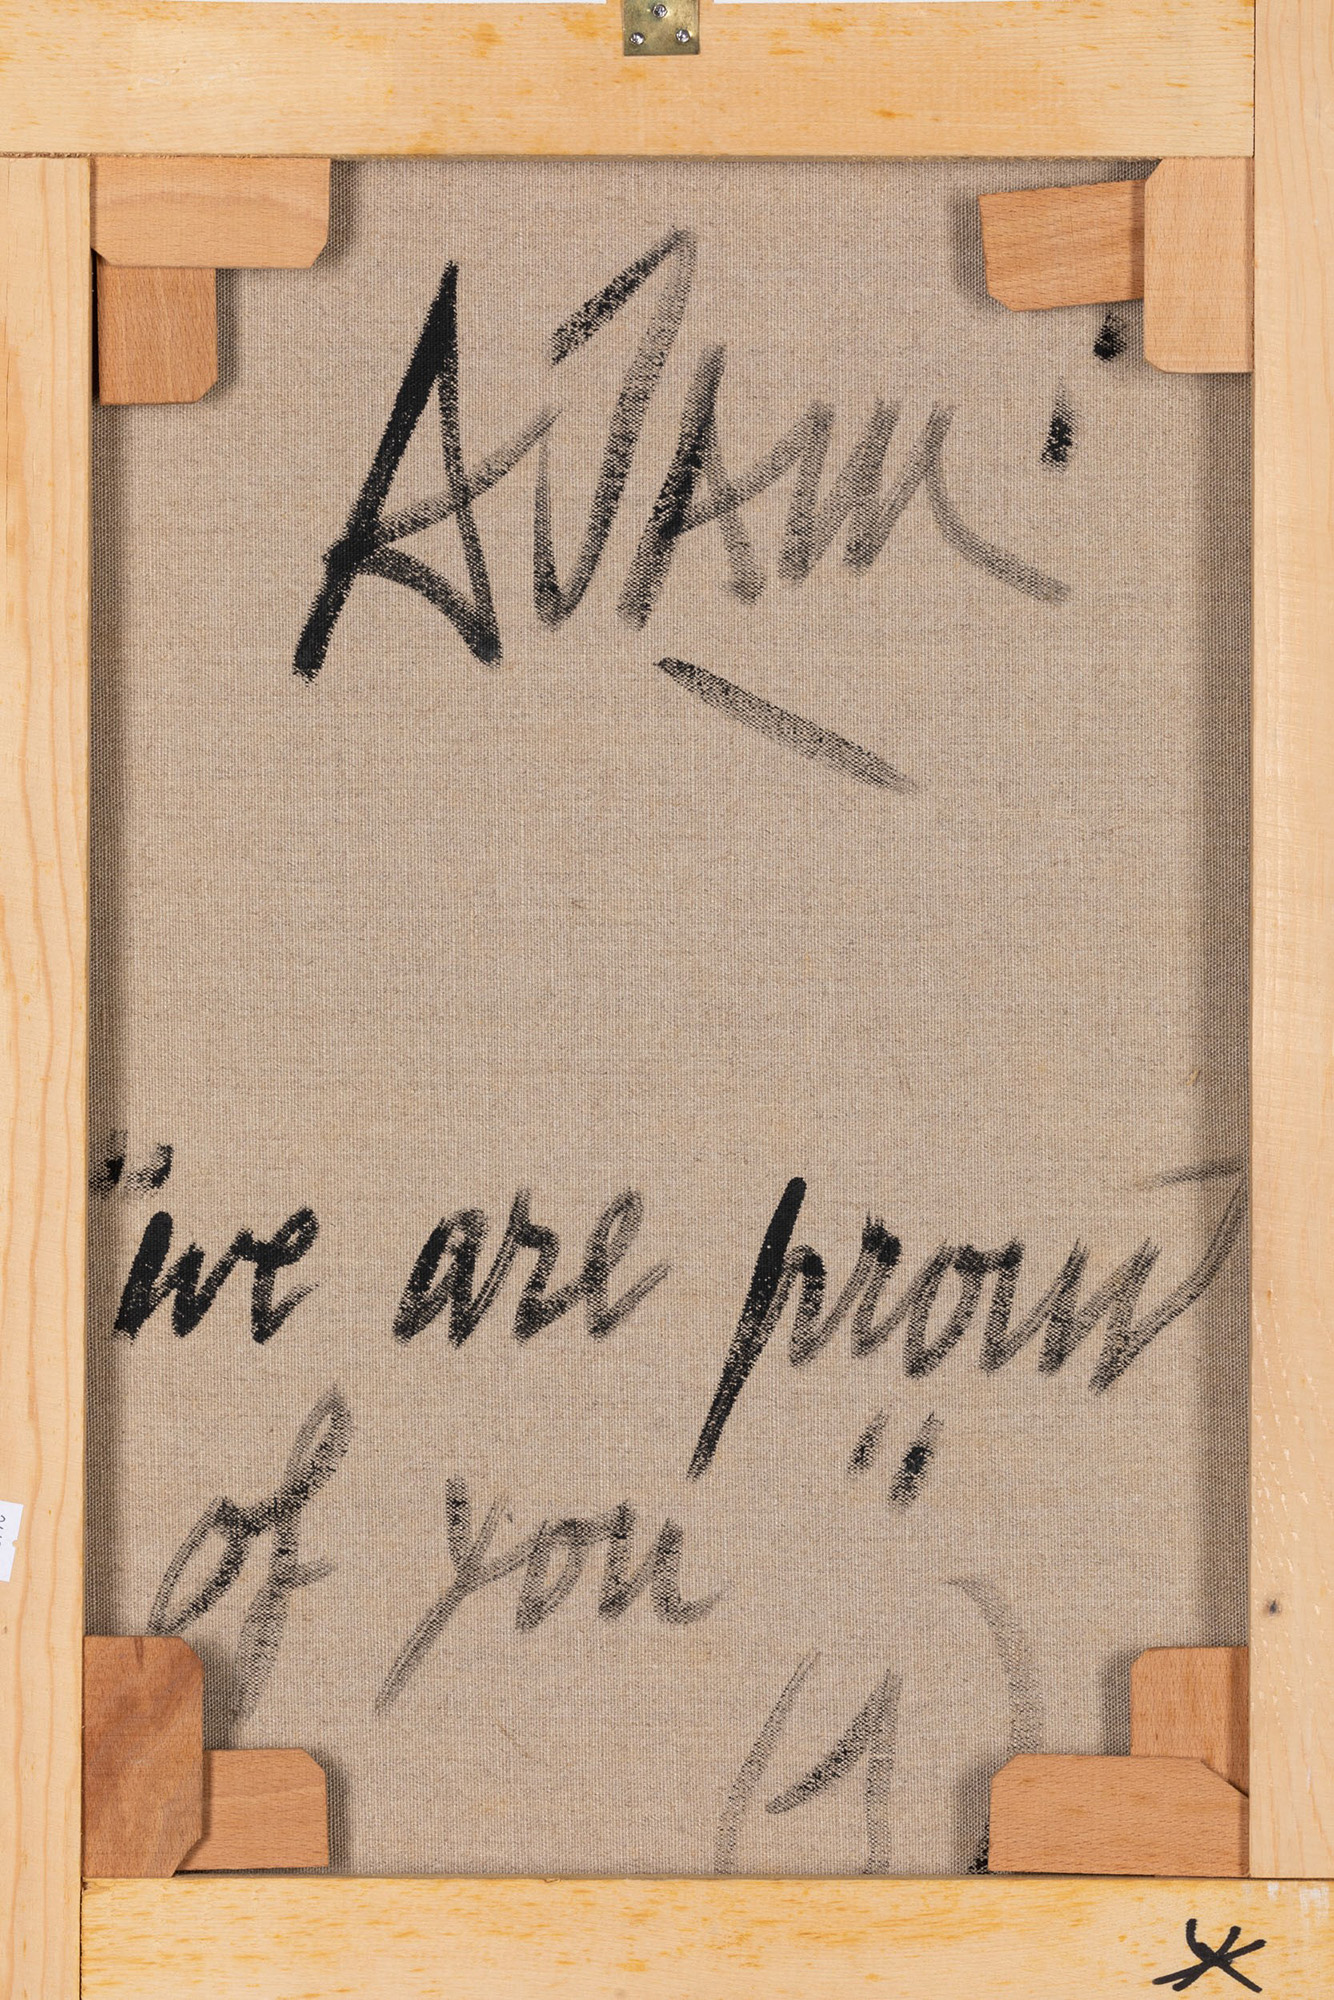 AJAm.
"we are proud
of you"
(1)